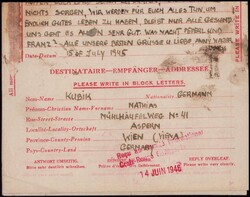 NICHTS BORGEN, WIR WERDEN FÜR EUCH ALLES TUN, UM
ENDLICH GUTES LEBEN ZU HABEN, BLEIBT NUR ALLE GESUND
UND GEHT ES AUCH SEHR GUT. WAS MACHT PEPERL UND
FRANZ? ALLE UNSERE BESTEN GRÜSSE U. LIEBE,
15th JULY 1945
DESTINATAIRE—EMPFÄNGER—ADDRESSEE
PLEASE WRITE IN BLOCK LETTERS.
Nom—Name—Name KUBIK Nationality GERMAN
Prénoms—Christian Name—Vorname MATHIAS
Rue—Street—Strasse MÜHLHÄUFELWEG No 41
Localité—Locality—Ortschaft ASPERN
Province—County—Provinz WIEN
Pays—Country—Land GERMANY
PLEASE WRITE IN BLOCK LETTERS.
ANTWORT UMSEITIG. REPLY OVERLEAF
14 JUIN 1946